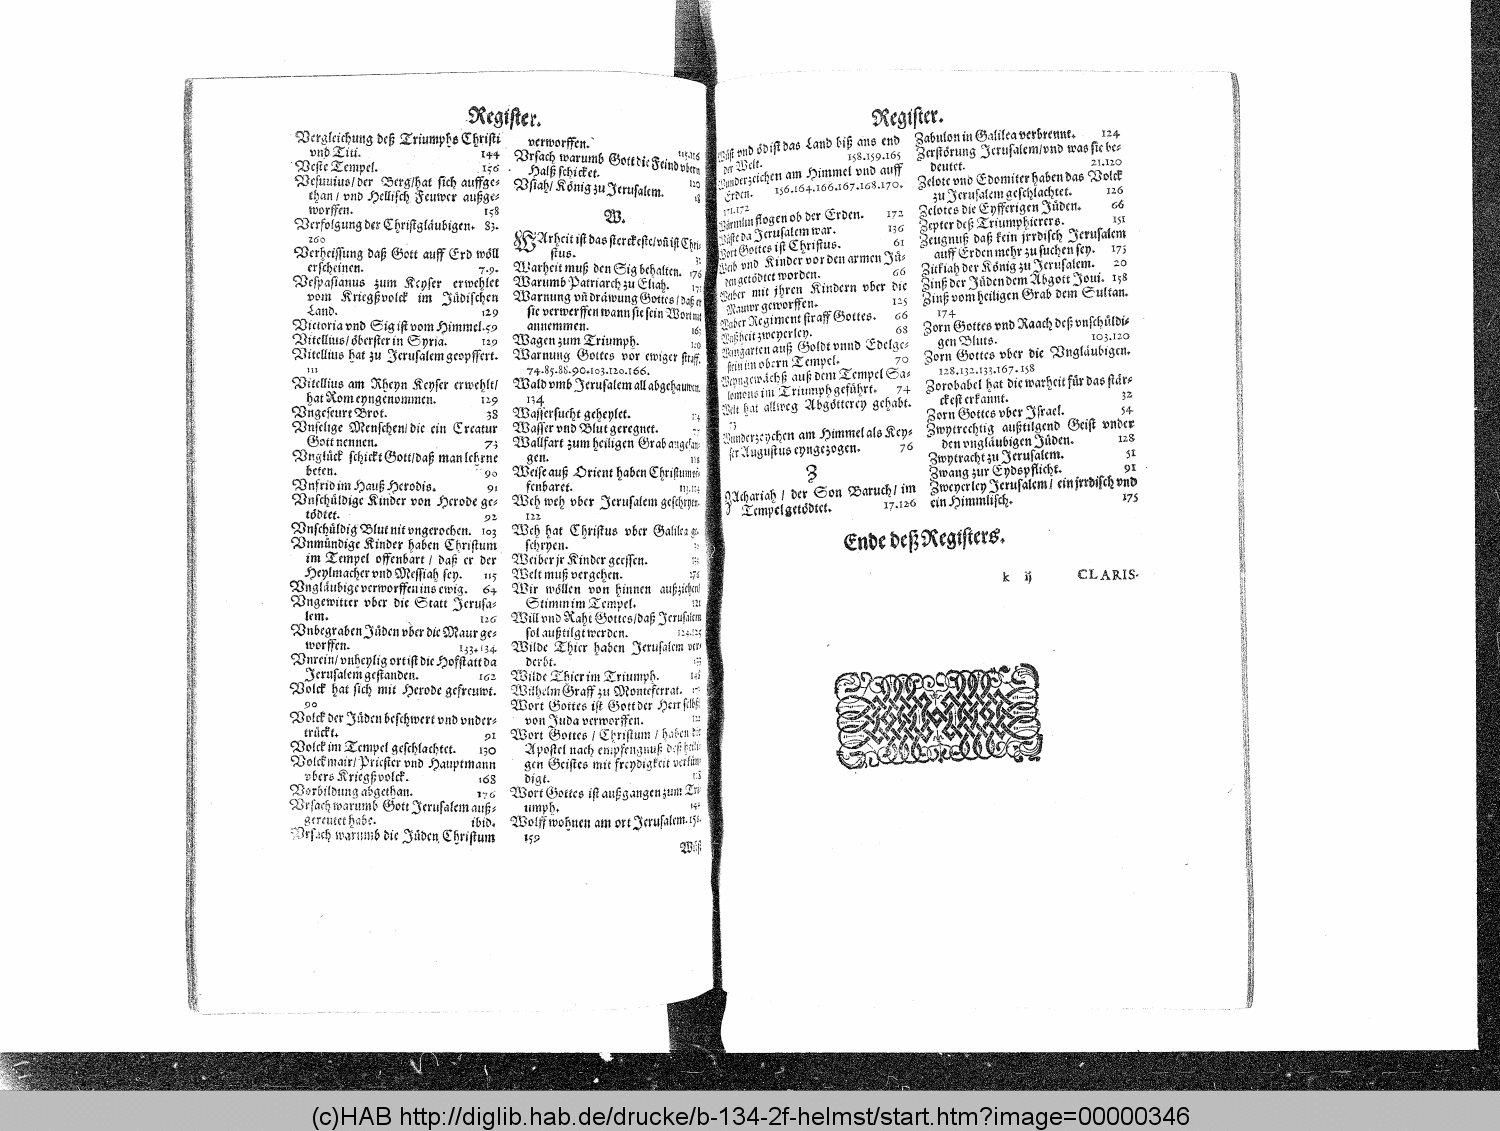 Register.
Vergleichung deß Triumphs Christi
vnd Titi. 144
Veste Tempel. 156
Vesuuius/der Berg/hat sich auffge-
than/ vnd Hellisch Feuwer außge-
worffen. 158
Verfolgung der Christgläubigen. 83.
160
Verheissung daß Gott auff Erd wöll
erscheinen. 7.9.
Vespasianus zum Keyser erwehlet
vom Kriegßvolck im Jüdischen
Land. 129
Victoria vnd Sig ist vom Himmel. 59
Vitellius/ öberster in Syria. 129
Vitellius hat zu Jerusalem geopffert.
111
Vitellius am Rheyn Keyser erwehlt/
hat Rom eyngenommen. 129
Vngeseurt Brot. 38
Vnselige Menschen/ die ein Creatur
Gott nennen. 73
Vnglück schickt Gott/daß man lehrne
beten. 90
Vnfrid im Hauß Herodis. 91
Vnschüldige Kinder von Herode ge-
tödtet. 92
Vnschüldig Blut nit vngerochen. 103
Vnmündige Kinder haben Christum
im Tempel offenbart / daß er der
Heylmacher vnd Messiah sey. 115
Vngläubige verworffen ins ewig. 64
Vngewitter vber die Statt Jerusa-
lem. 126
Vnbegraben Jüden vber die Maur ge-
worffen. 133.134
Vnrein/ vnheylig ort ist die Hofstatt da
Jerusalem gestanden. 162
Volck hat sich mit Herode gefreuwt.
90
Volck der Jüden beschwert vnd vnder-
trückt. 91
Volck im Tempel geschlachtet. 130
Volckmair/ Priester vnd Hauptmann
vbers Kriegßvolck. 168
Vorbildung abgethan. 176
Vrsach warumb Gott Jerusalem auß-
gereutet habe. ibid.
Vrsach warumb die Jüden Christum
verworffen. 115.116
Vrsach warumb Gott die Feind vbern
Halß schicket. 120
Vsiah/ König zu Jerusalem. 18
W.
WArheit ist das sterckeste/vñ ist Chri-
stus.
Warheit muß den Sig behalten. 176
Warumb Patriarch zu Eliah.
Warnung vñ dräwung Gottes/ daß er
sie verwerffen wann sie sein Wort nit
annemmen.
Wagen zum Triumph.
Warnung Gottes vor ewiger straff.
74.85.88.90.103.120.166.
Wald vmb Jerusalem all abgehauwen.
134
Wassersucht geheylet.
Wasser vnd Blut geregnet.
Wallfart zum heiligen Grab angefan-
gen.
Weise auß Orient haben Christum of-
fenbaret. 113.114
Weh weh vber Jerusalem geschryen.
122
Weh hat Christus vber Galilea ge-
schryen.
Weiber jr Kinder geessen.
Welt muß vergehen. 176
Wir wöllen von hinnen außziehen/
Stimm im Tempel. 121
Will vnd Raht Gottes/daß Jerusalem
sol außtilgt werden. 124.125
Wilde Thier haben Jerusalem ver-
derbt.
Wilde Thier im Triumph.
Wilhelm Graff zu Monteferrat.
Wort Gottes ist Gott der Herr selbs/
von Juda verworffen.
Wort Gottes / Christum / haben die
Apostel nach empfengnuß deß heili-
gen Geistes mit freydigkeit verkün-
digt.
Wort Gottes ist außgangen zum Tri-
umph.
Wolff wohnen am ort Jerusalem.
159
Wüst
Register.
Wüst vnd öd ist das Land biß ans end
der Welt. 158.159.165
Wunderzeichen am Himmel vnd auff
Erden. 156.164.166.167.168.170.
171.172
Würmlin flogen ob der Erden. 172
Wüste da Jerusalem war. 136
Wort Gottes ist Christus. 61
Weib vnd Kinder vor den armen Jü-
den getödtet worden. 66
Weiber mit jhren Kindern vber die
Mauwr geworffen. 125
Waber Regiment straff Gottes. 66
Waßheit zweyerley. 68
Weingarten auß Goldt vnnd Edelge-
stein im obern Tempel. 70
Weyngewächß auß dem Tempel Sa-
lomons im Triumph geführt. 74
Welt hat allweg Abgötterey gehabt.
73
Wunderzeychen am Himmel als Key-
ser Augustus eyngezogen. 76
Z
ZAchariah / der Son Baruch/ im
Tempel getödtet. 17.126
Zabulon in Galilea verbrennt. 124
Zerstörung Jerusalem/vnd was sie be-
deutet. 21.120
Zelote vnd Edomiter haben das Volck
zu Jerusalem geschlachtet. 126
Zelotes die Eyfferigen Jüden. 66
Zepter deß Triumphierers. 151
Zeugnuß daß kein jrrdisch Jerusalem
auff Erden mehr zu suchen sey. 175
Zitkiah der König zu Jerusalem. 20
Zinß der Jüden dem Abgott Joui. 158
Zinß vom heiligen Grab dem Sultan.
174
Zorn Gottes vnd Raach deß vnschüldi-
gen Bluts. 103.120
Zorn Gottes vber die Vngläubigen.
128.132.133.167.158
Zorobabel hat die warheit für das stär-
ckest erkannt. 32
Zorn Gottes vber Israel. 54
Zwytrechtig außtilgend Geist vnder
den vngläubigen Jüden. 128
Zwytracht zu Jerusalem. 51
Zwang zur Eydspflicht. 91
Zweyerley Jerusalem/ ein jrrdisch vnd
ein Himmlisch. 175
Ende deß Registers.
k ij CLARIS-
(c)HAB http://diglib.hab.de/drucke/b-134-2f-helmst/start.htm?image=00000346